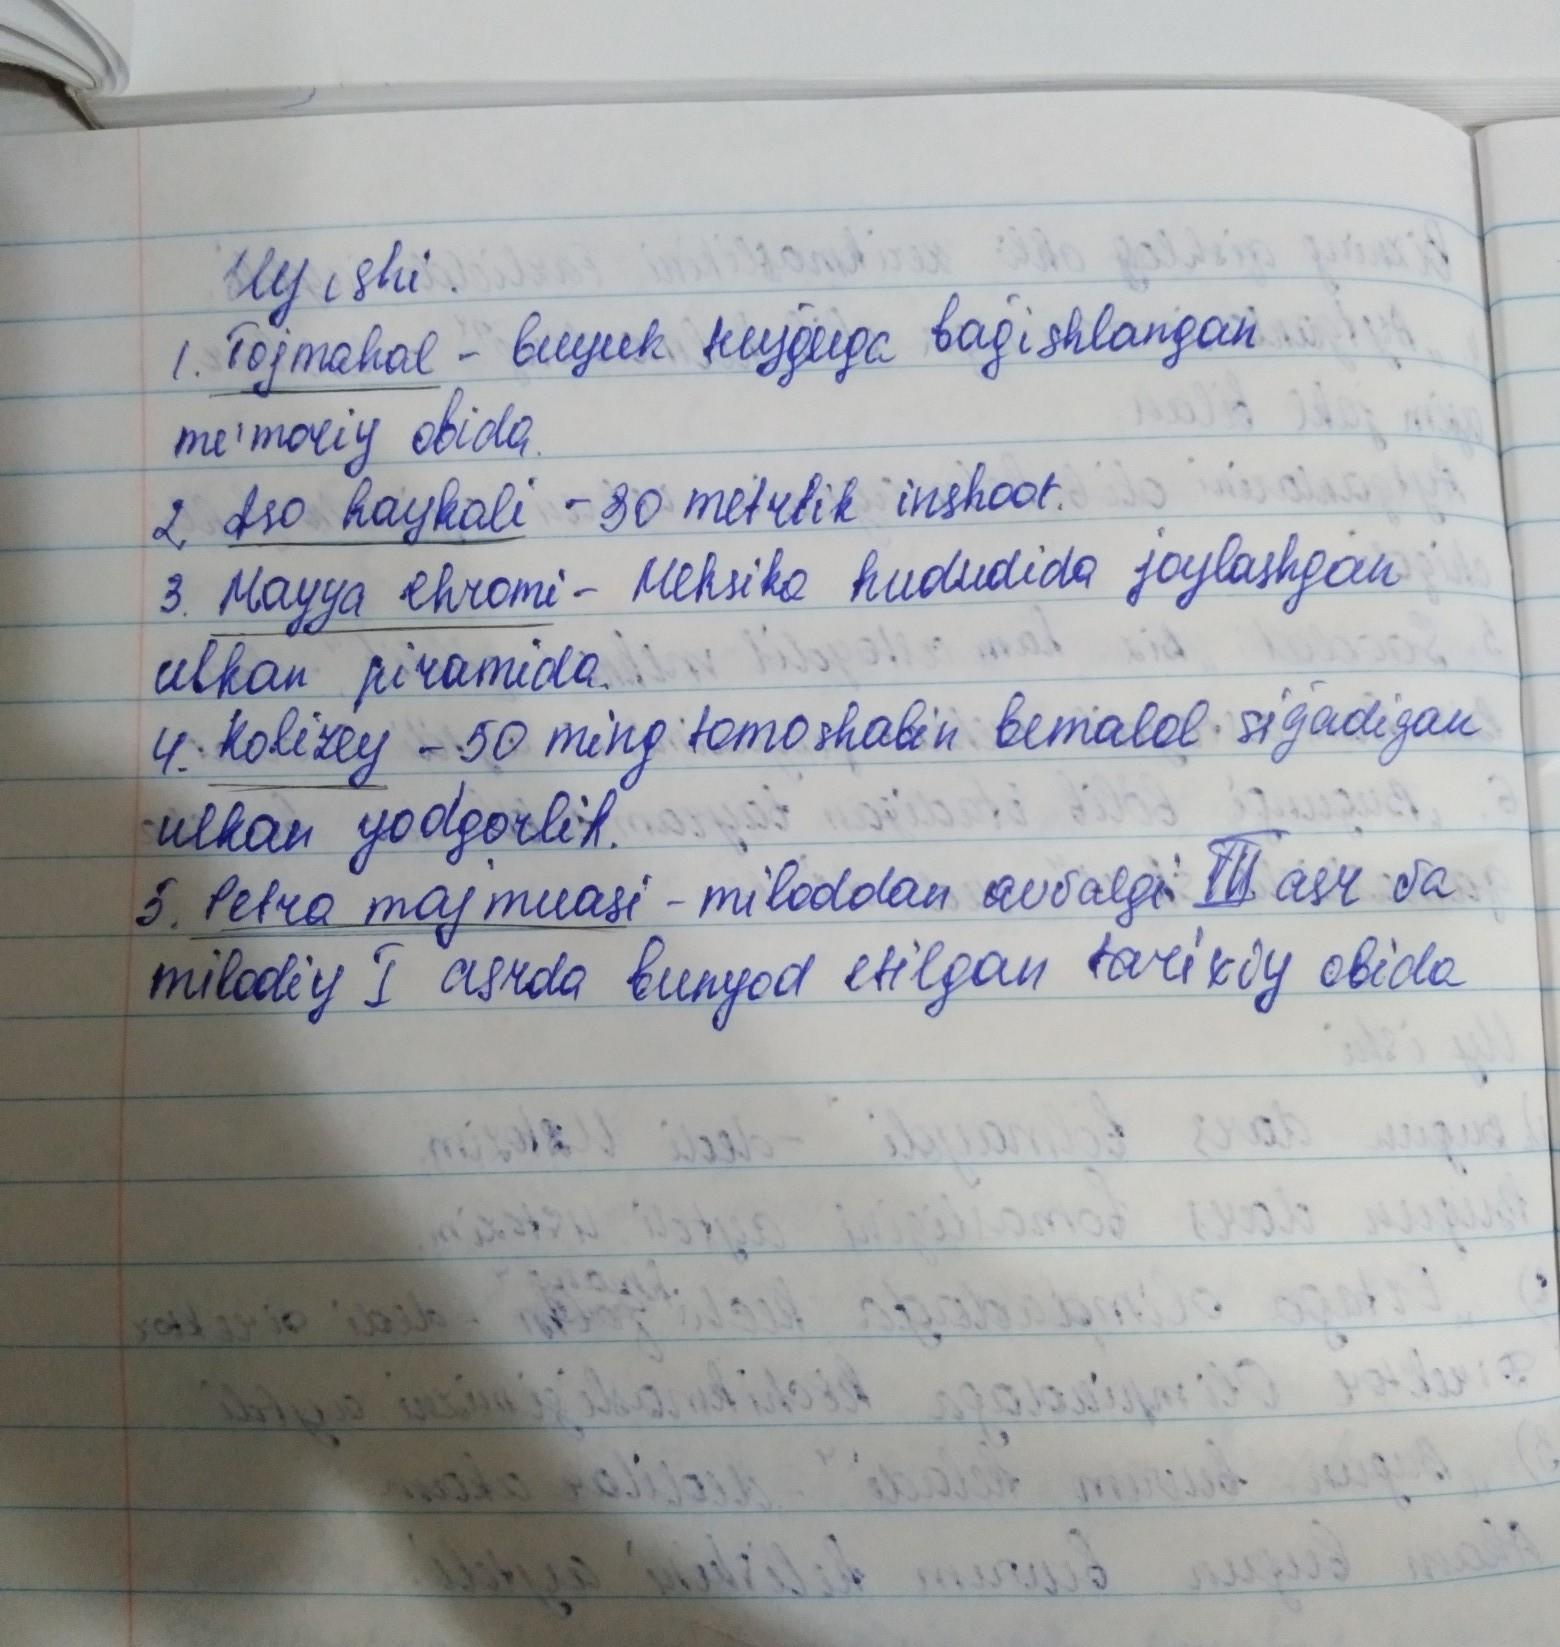 Uy ishi.
1. Tojmahal - buyuk tuyğuga bağishlangan
me'moriy obida.
2. Iso haykali - 30 metrlik inshoot.
3. Mayya ehromi - Meksika hududida joylashgan
ulkan piramida.
4. Kolizey - 50 ming tomoshabin bemalol siğadigan
ulkan yodgorlik.
5. Petra majmuasi - miloddan avvalgi III asr va
milodiy I asrda bunyod etilgan tarixiy obida